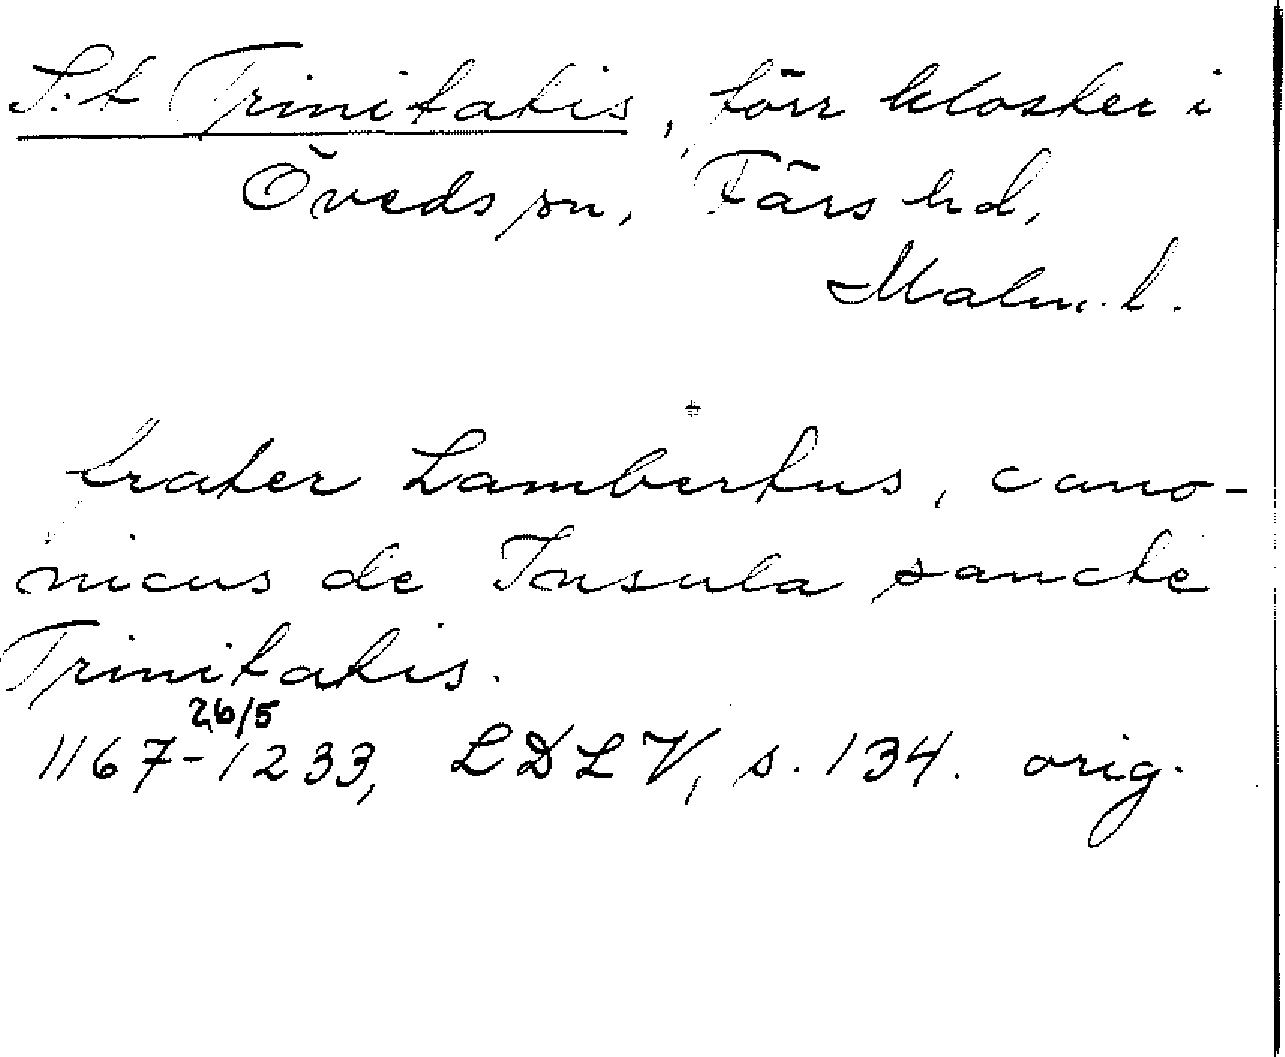 S:t Trinitatis, förr kloster i
Öveds sn, Färs hd,
Malm. l.
frater Lambertus, cano-
nicus de Insula sancte
Trinitatis.
26/5
1167-1233, LDLV, s. 134. orig.